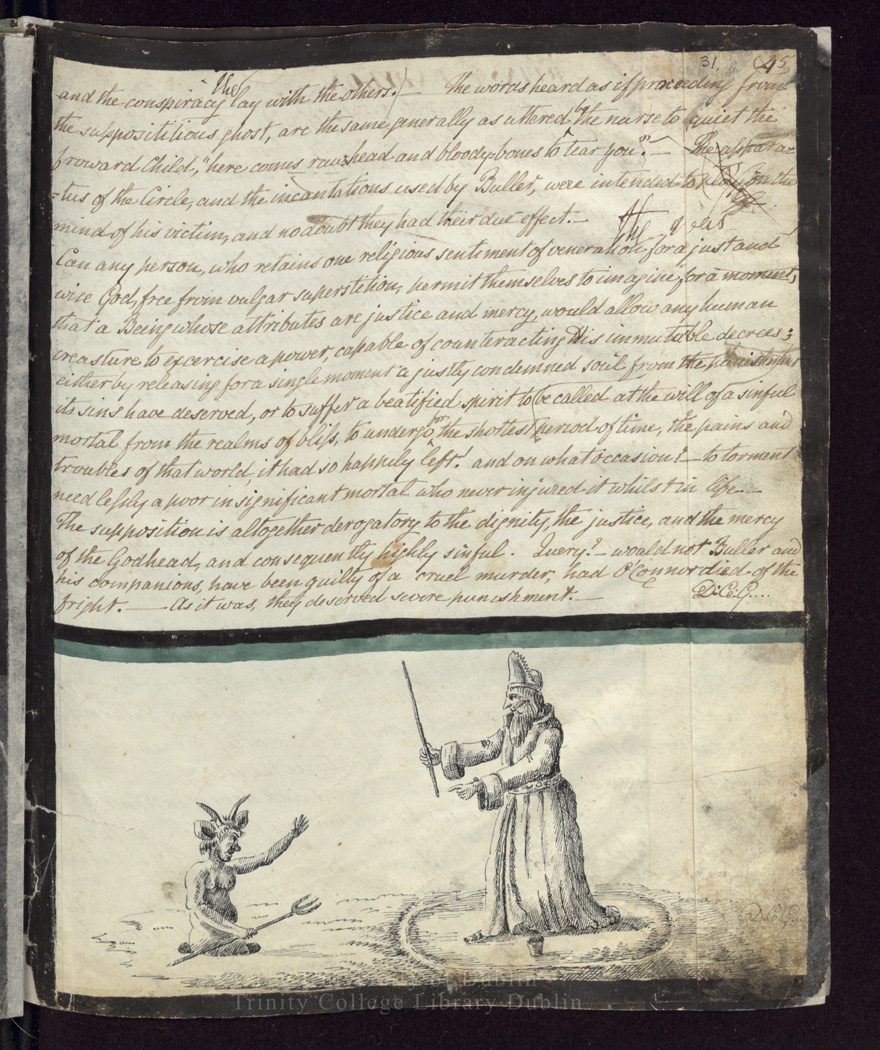 31. 45
and the conspiracy lay with the others. The words heard as if proceeding from
the supposititious ghost, are the same generally as uttered by the nurse to quiet the
froward Child, "here comes rawhead and bloody-bones to tear you"? — The appara=
=tus of the Circle, and the incantations used by Buller, were intended to play on the
mind of his victim, and no doubt they had their due effect. —
Can any person, who retains one religious sentiment of veneration for a just and
wise God, free from vulgar superstition, permit themselves to imagine, for a moment,
that a Being whose attributes are justice and mercy, would allow any human
creature to excercise a power, capable of counteracting His immutable decrees;
either by releasing for a single moment a justly condemned soul from the punishment
its sins have deserved, or to suffer a beatified spirit to be called at the will of a sinful
mortal from the realms of bliss, to undergo for the shortest period of time, the pains and
troubles of that world, it had so happily left! and on what occasion? — to torment
needlessly a poor insignificant mortal who never injured it whilst in life. —
The supposition is altogether derogatory to the dignity, the justice, and the mercy
of the Godhead, and consequently highly sinful. Query? — would not Buller and
his companions, have been guilty of a cruel murder, had O'Connor died of the
fright. — As it was, they deserved severe punishment. —
University of Dublin
Trinity College Library Dublin